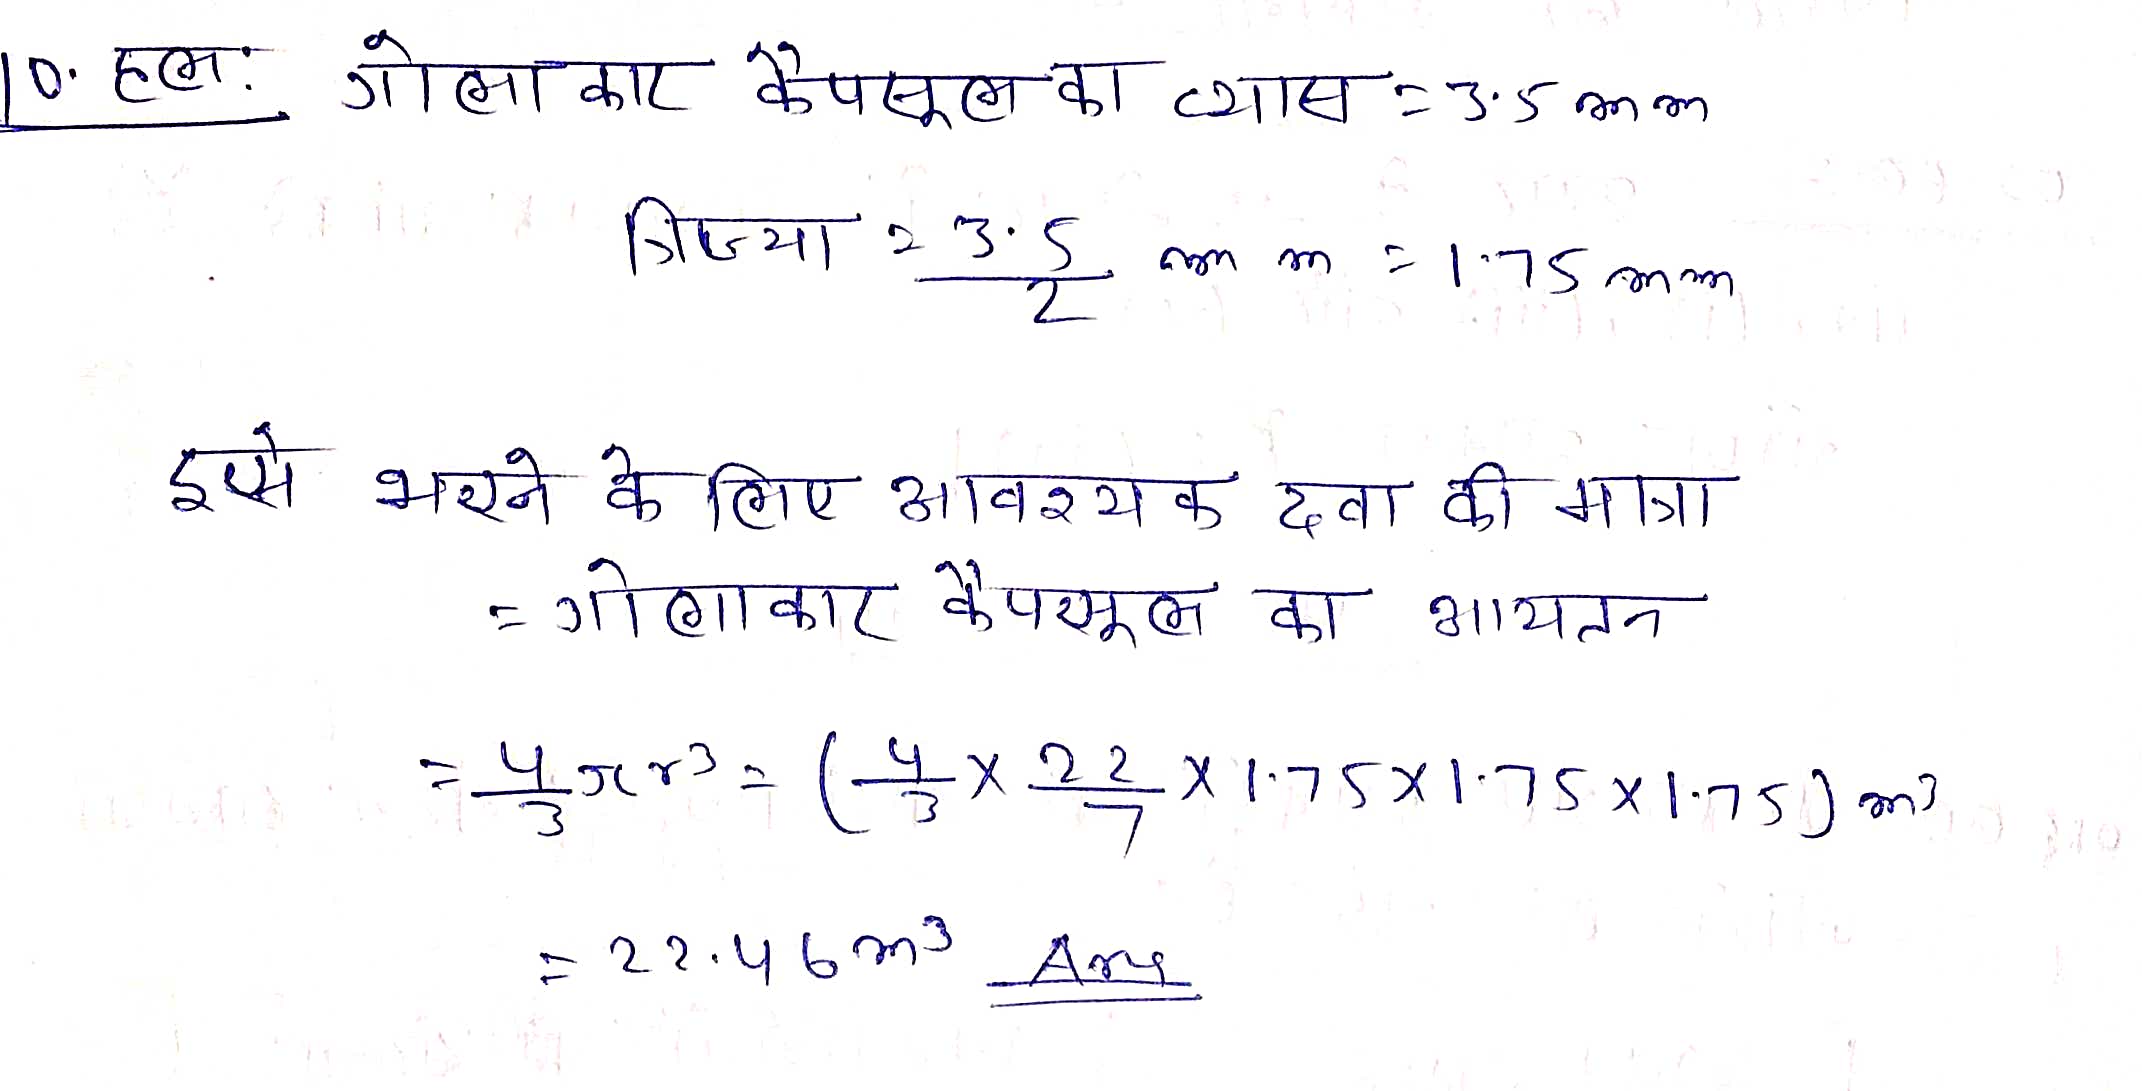 10. हल: गोलाकार कैपसूल का व्यास = 3.5 mm
त्रिज्या = 3.5/2 mm = 1.75 mm
इसे भरने के लिए आवश्यक दवा की मात्रा
= गोलाकार कैपसूल का आयतन
= 4/3 πr³ = (4/3 × 22/7 × 1.75 × 1.75 × 1.75) m³
= 22.46 m³ Ans